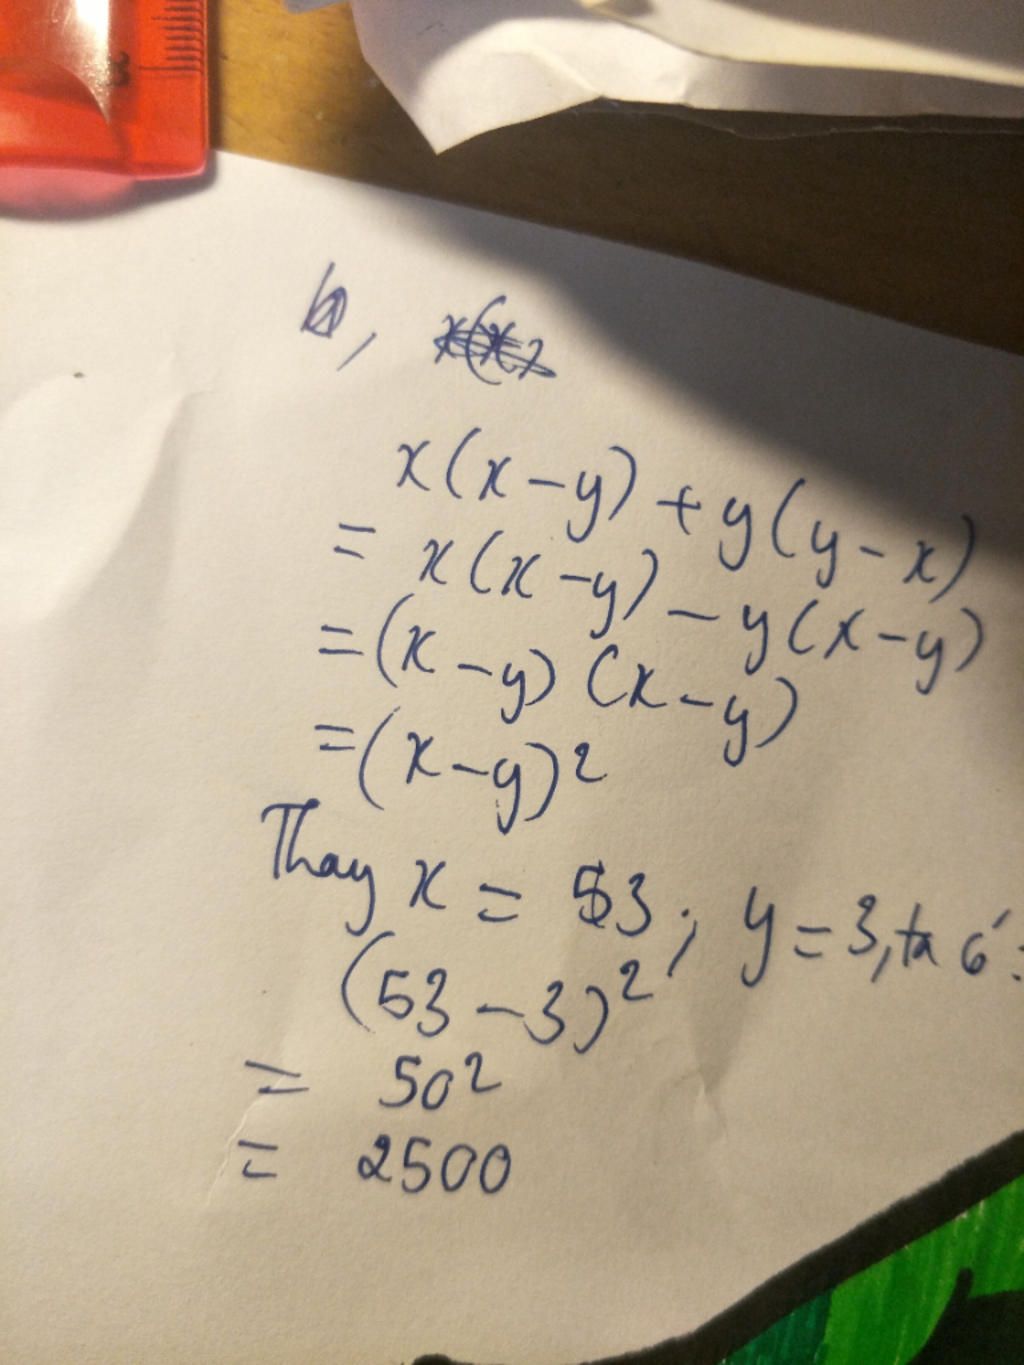 b, x(x,
x(x-y)+y(y-x)
= x(x-y)-y(x-y)
=(x-y)(x-y)
=(x-y)²
Thay x = 53; y=3, ta có:
(53-3)²
= 50²
= 2500